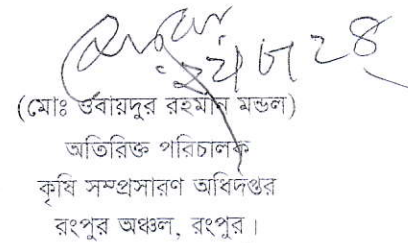 (মোঃ ওবায়দুর রহমান মন্ডল)
অতিরিক্ত পরিচালক
কৃষি সম্প্রসারণ অধিদপ্তর
রংপুর অঞ্চল, রংপুর।